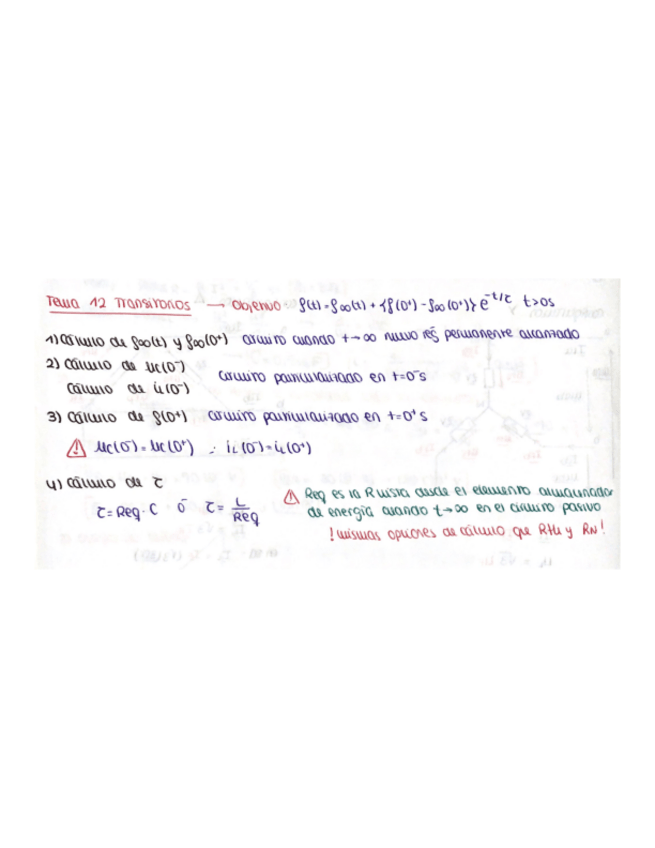 Tema 12 Transitorios → Objetivo f(t) = f∞(t) + {f(0⁺) - f∞(0⁺)} e^(-t/τ) t>0s
1) Cálculo de f∞(t) y f∞(0⁺) circuito cuando t→∞ nuevo rég permanente alcanzado
2) Cálculo de uc(0⁻)
Cálculo de iL(0⁻)
circuito particularizado en t=0⁻s
3) Cálculo de f(0⁺) circuito particularizado en t=0⁺s
⚠ uc(0⁻) = uc(0⁺) ; iL(0⁻) = iL(0⁺)
4) Cálculo de τ
τ = Req · C ó τ = L/Req
⚠ Req es la R vista desde el elemento almacenador
de energía cuando t→∞ en el circuito pasivo
¡mismas opciones de cálculo que RTH y RN!